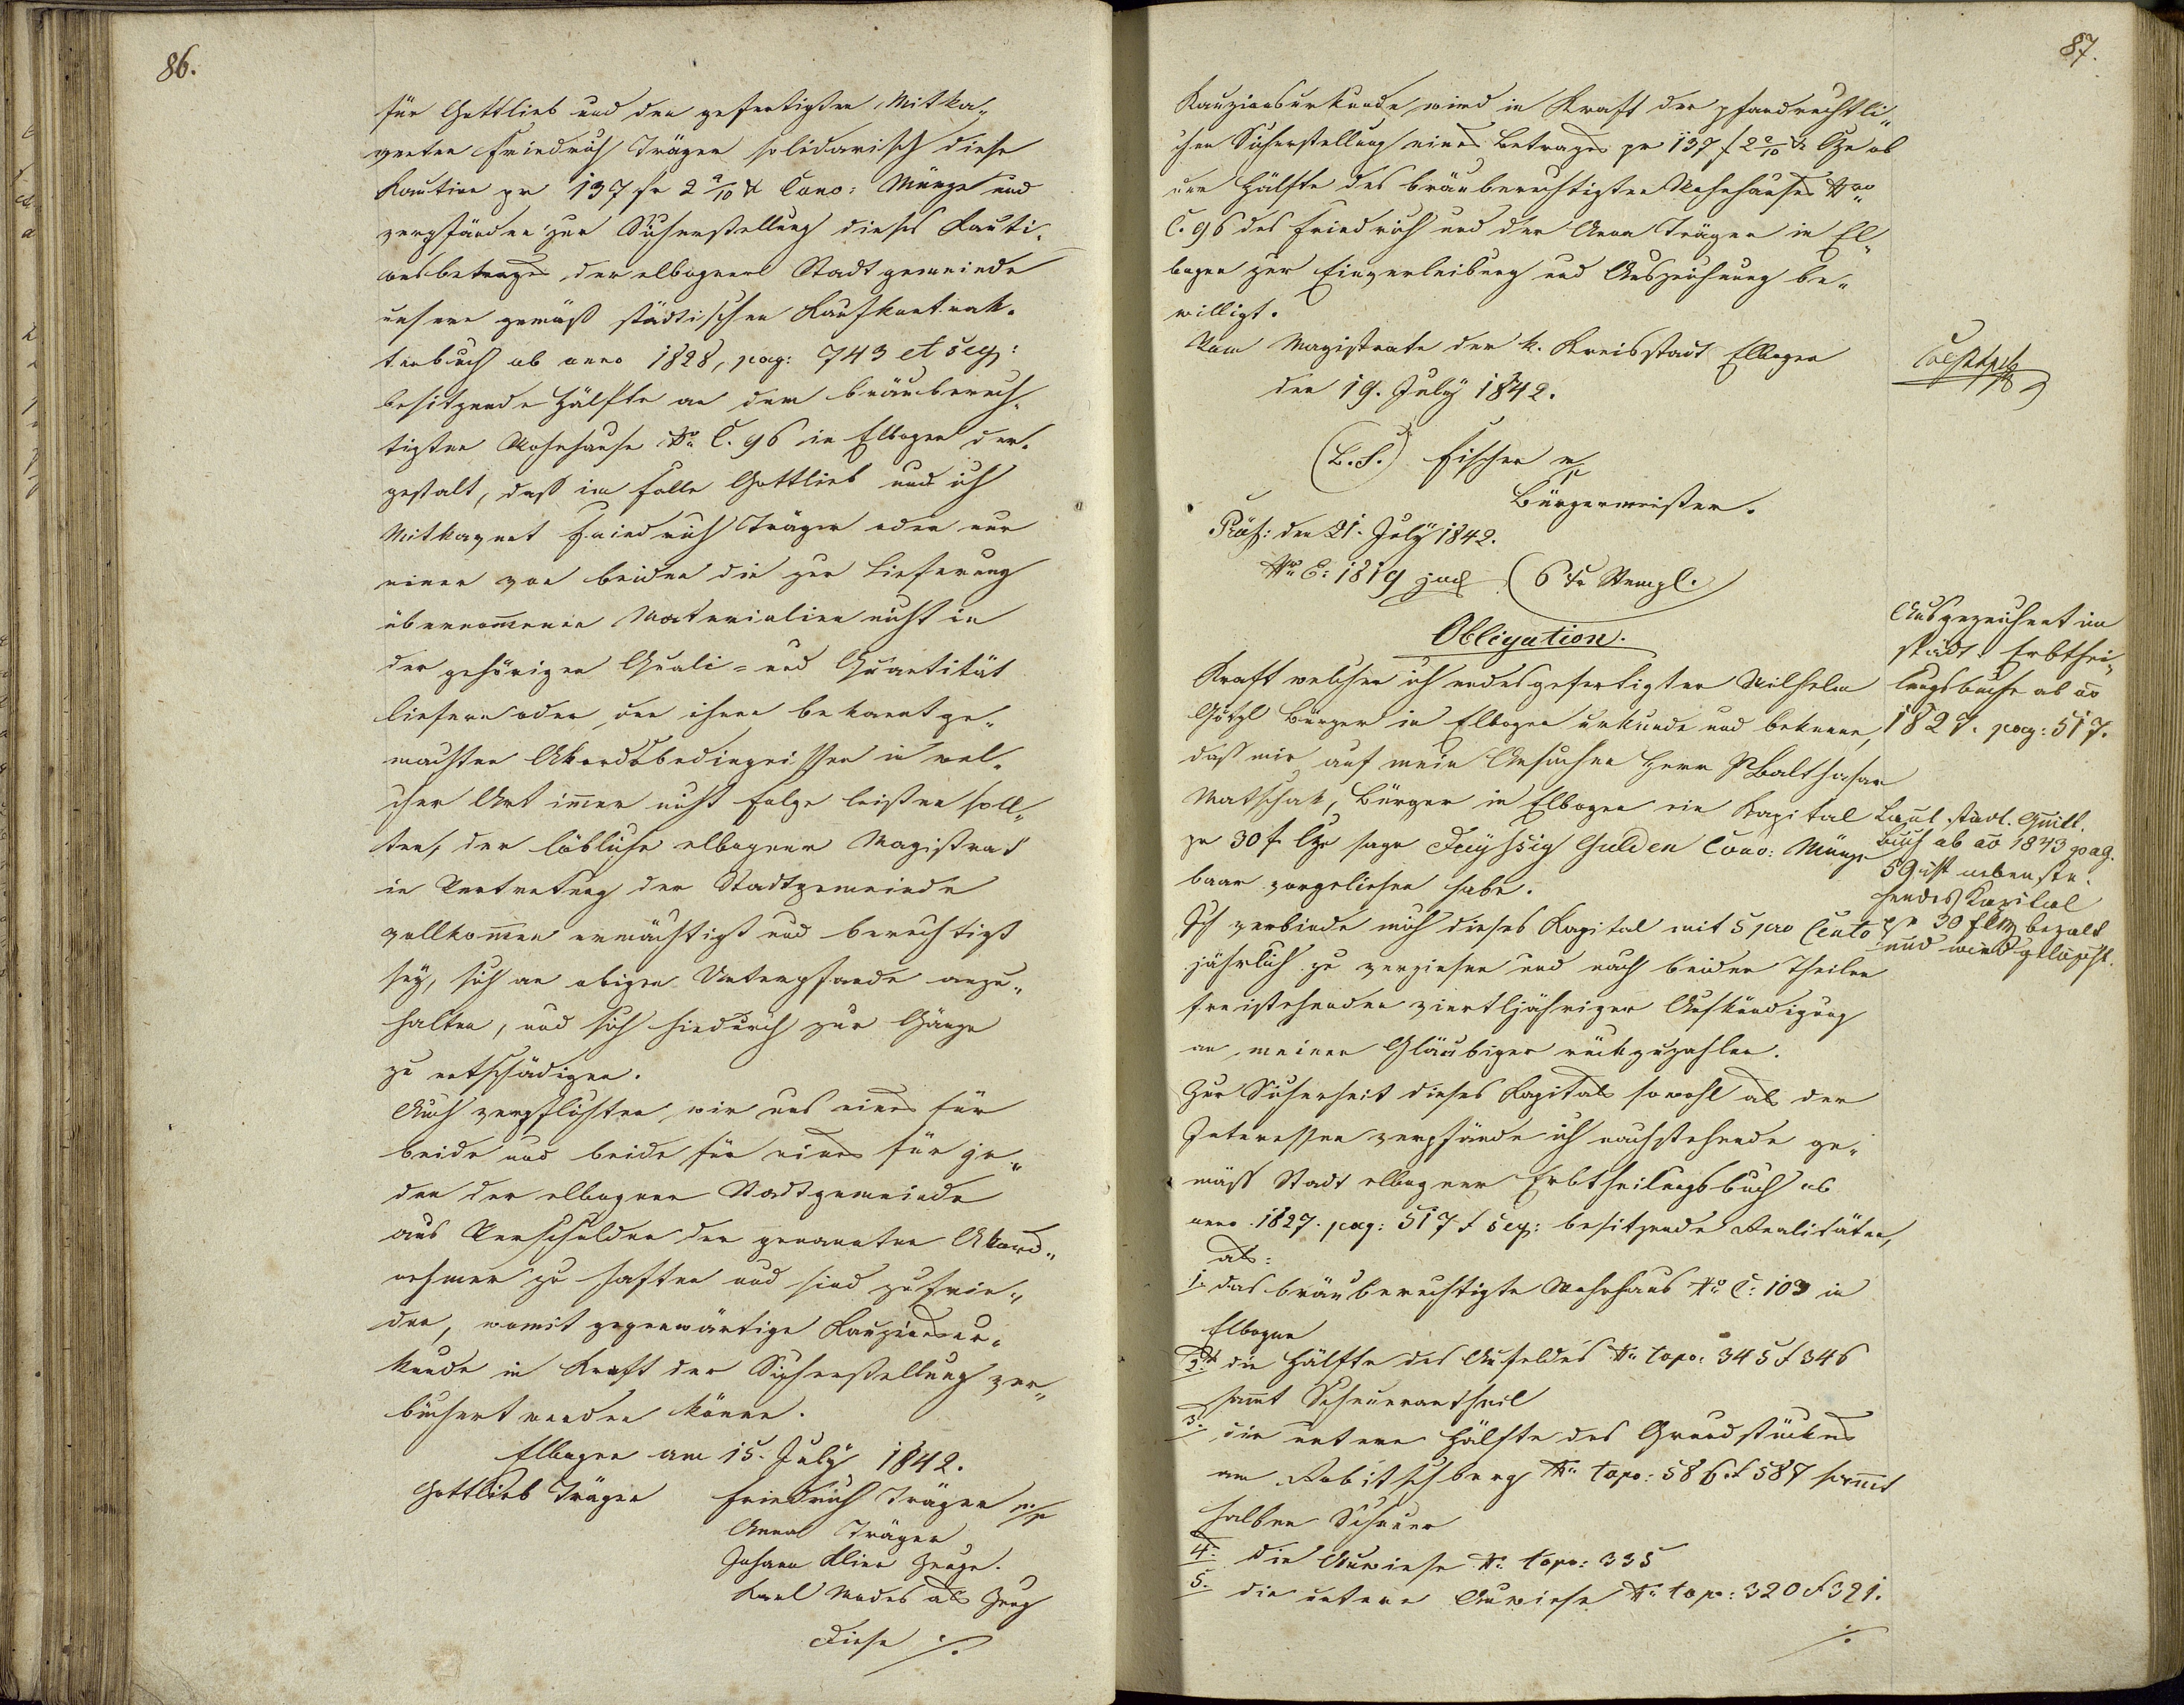 86.
für Gottlieb und den gefertigten Mitka„
venten Friedrich Träger solidarisch diese
Kaution pr 137 fr 2 2/10 x Conv: Münze und
verpfänden zur Sicherstellung dieses Kauti„
onsbetrages der elbogner Stadtgemeinde
unsere gemäß städtischen Kaufkontrak„
tenbuch ab anno 1828, pag: 743 et seq:
besitzende Hälfte an dem bräuberech„
tigten Wohnhause No C. 96 in Elbogen der„
gestalt, daß im Falle Gottlieb und ich
Mitkavent Friedrich Träger oder nur
einer von beiden die zur Lieferung
übernommenen Materialien nicht in
der gehörigen Quali= und Quantität
liefern oder den ihnen bekannt ge„
machten Akordsbedingnissen in wel„
cher Art immer nicht Folge leisten soll„
ten, der löbliche elbogner Magistrat
in Vertretung der Stadtgemeinde
vollkommen ermächtigt und berechtigt
sey, sich an obigen Unterpfande anzu„
halten, und sich hiedurch zur Gänze
zu entschädigen.
Auch verpflichten wir uns eines für
beide und beide für eines für je„
den der elbogner Stadtgemeinde
aus Verschulden der genannten Akord„
nehmer zu haften und sind zufrie„
den, womit gegenwärtige Kauzionsur„
kunde in Kraft der Sicherstellung ver„
büchert werden könne.
Elbogen am 15. July 1842.
Gottlieb Träger Friedrich Träger m/p
Anna Träger
Johann Klier Zeuge.
Karl Modes als Zeug
Diese ./.
87.
Kauzionsurkunde wird in Kraft der pfandrechtli„
chen Sicherstellung eines Betrages pr 137 f 2 2/10 x CMze ob
der Hälfte des bräuberechtigten Wohnhauses Nro
C. 96 des Friedrich und der Anna Träger in El„
bogen zur Einverleibung und Auszeichnung be„
willigt.
Vom Magistrate der k. Kreisstadt Elbogen
den 19. July 1842.
(L.S.) Fischer m/p
Bürgermeister.
Präs: den 21. July 1842.
Nro E: 1819 jud (6 xr Stempl.)
Obligation.
Kraft welcher ich endesgefertigter Wilhelm
Götzl Bürger in Elbogen urkunde und bekenne,
daß mir auf mein Ansuchen Herr P Balthasar
Matschak, Bürger in Elbogen ein Kapital
pr 30 f CMze sage Dreyßsig Gulden Conv: Münze
baar vorgeliehen habe.
Ich verbinde mich dieses Kapital mit 5 pro Cento
jährlich zu verzinsen und nach beiden Theilen
freistehender viertljähriger Aufkündigung
an meinen Gläubiger rückzuzahlen.
Zur Sicherheit dieses Kapitals sowohl als der
Interessen verpfände ich nachstehende ge„
mäß Stadt elbogner Erbtheilungsbuch ab
anno 1827. pag: 517 & seq: besitzende Realitäten,
als:
1. das bräuberechtigte Wohnhaus No C: 103 in
Elbogen
2. die Hälfte des Aufeldes No topo: 345 & 346
sammt Scheuerantheil
3. die untere Hälfte des Grundstückes
am Robitschberg No topo: 586 & 587 sammt
halben Scheuer
4. Die Auwiese No topo: 335
5. die untere Auwiese No topo: 320 & 321.
./.
Ausgezeichnet im
städt. Erbthei„
lungsbuche ab ao
1827. pag: 517.
Laut stadt. Quitt.
Buch ab ao 1843 pag.
59 ist nebenste„
hendes Kapital
pr 30 f CMz bezalt
und wird gelöscht.